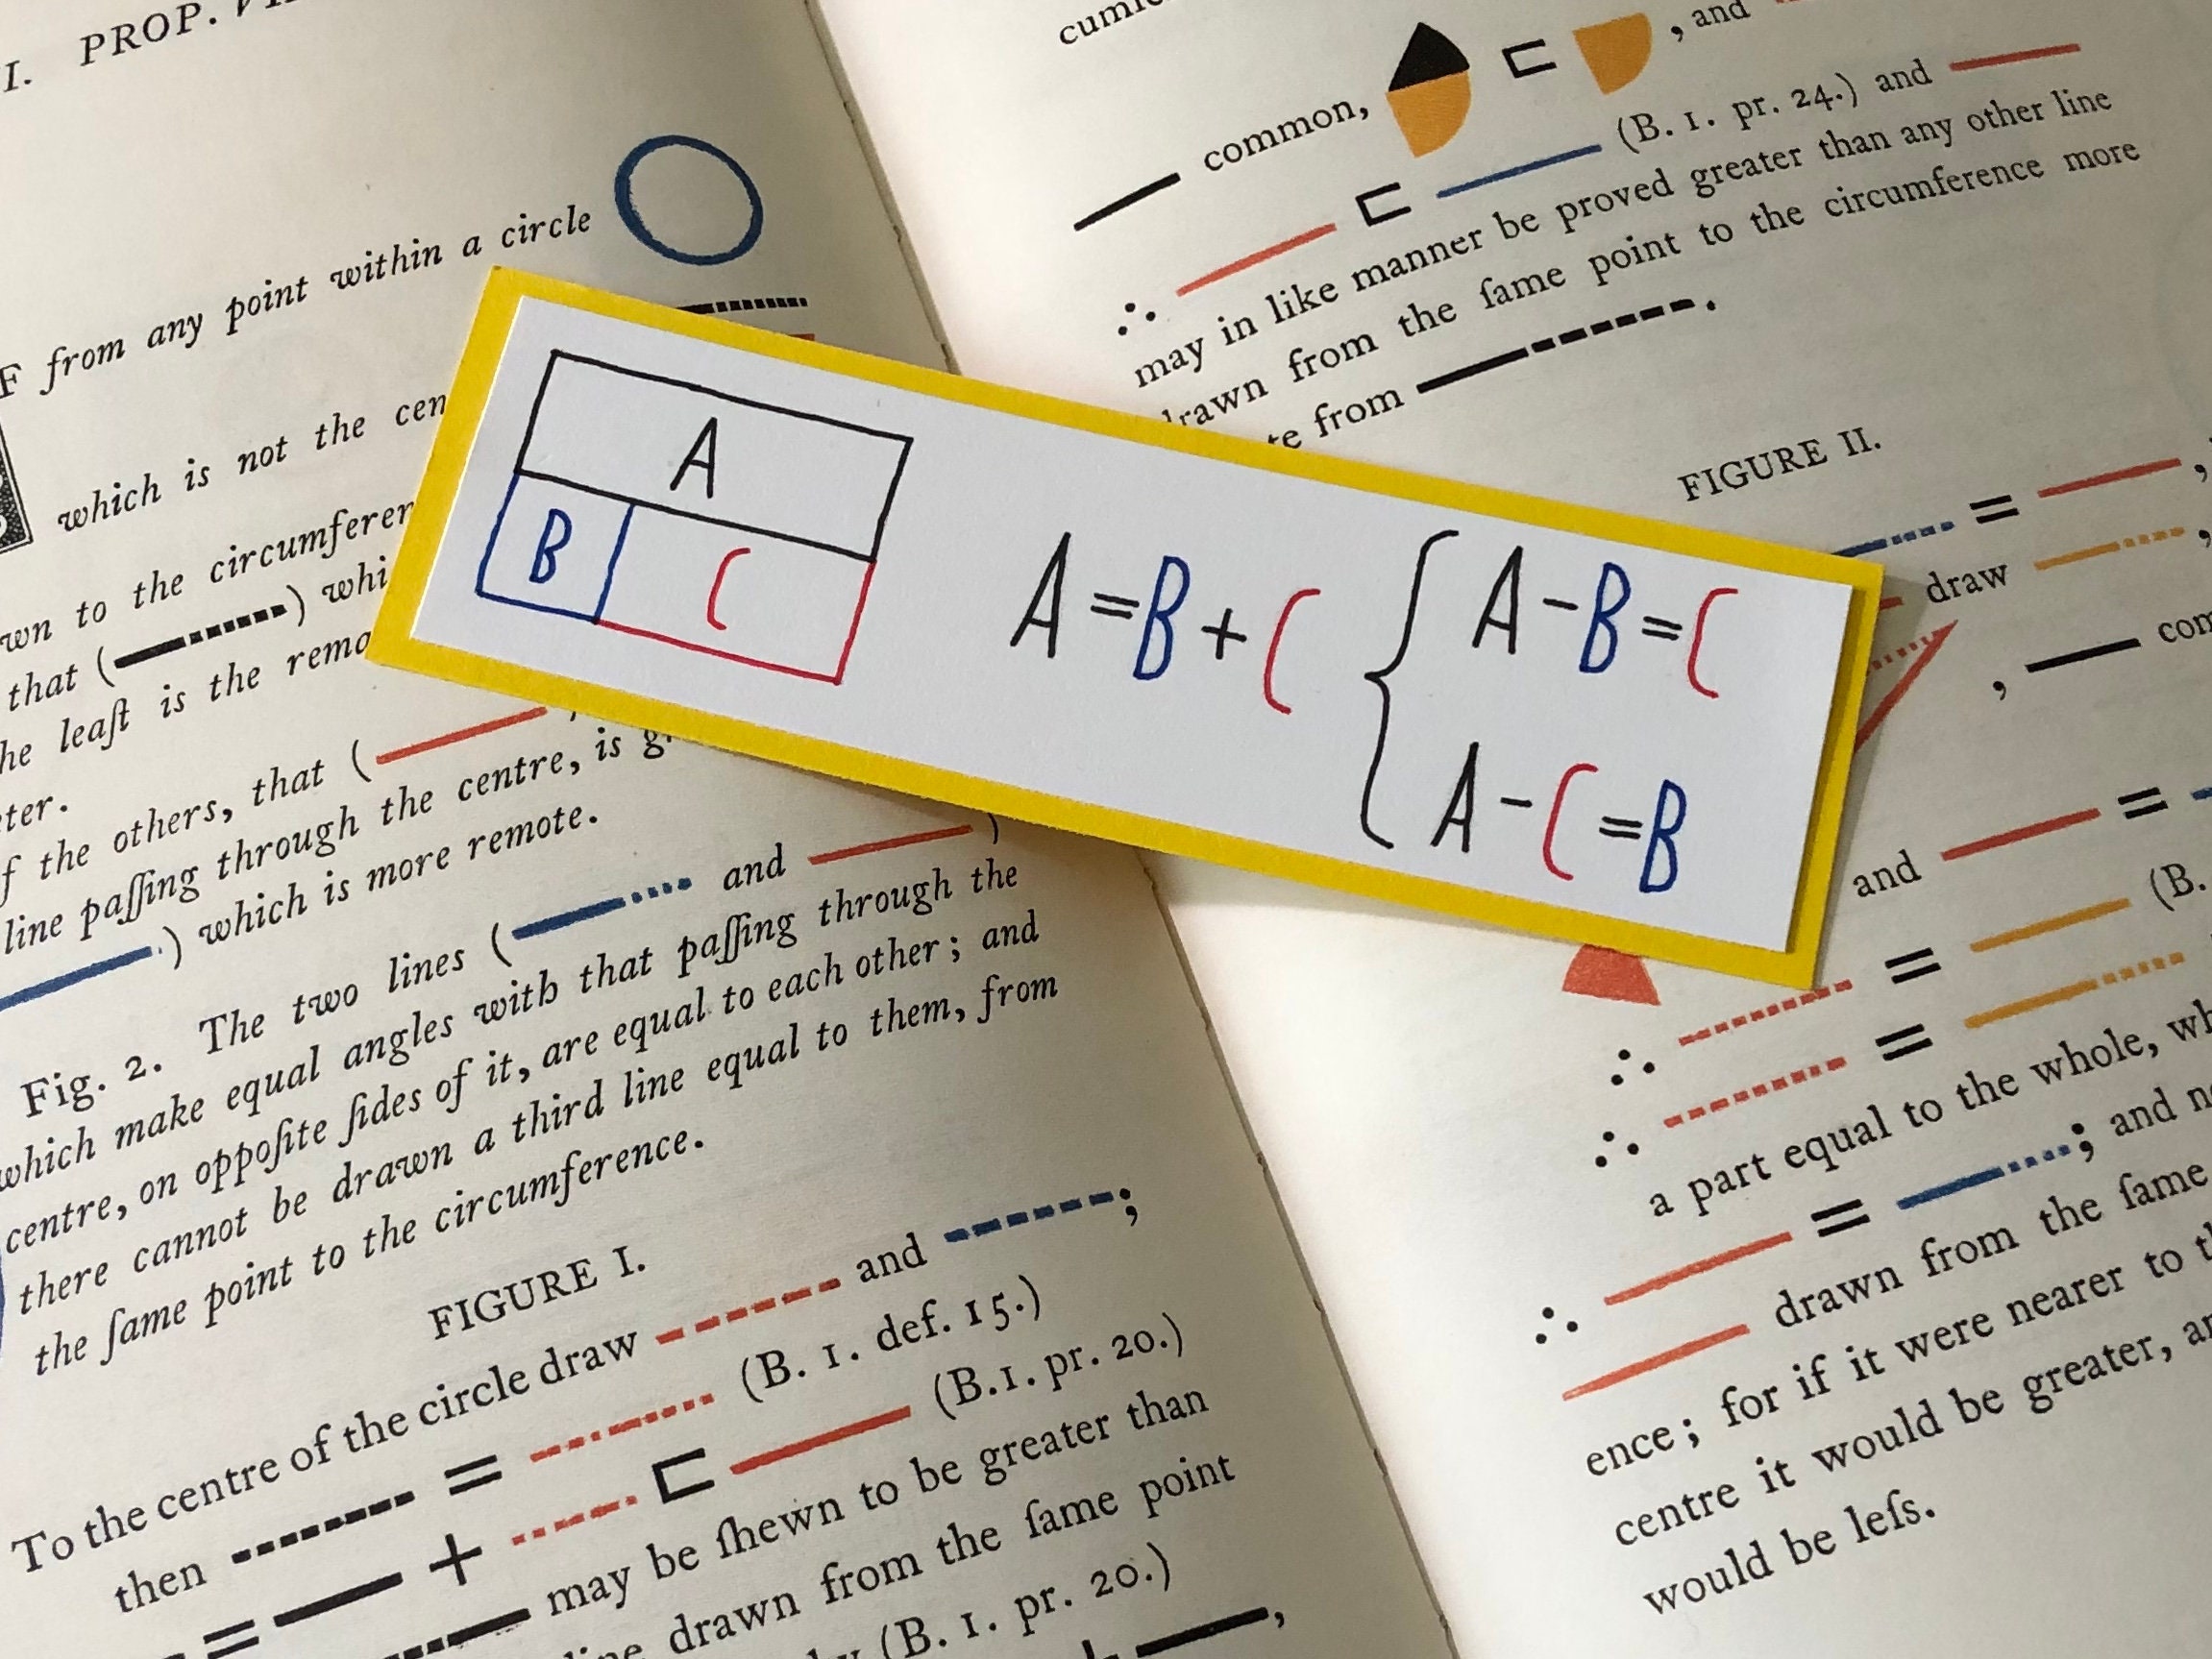 I. PROP.
F from any point within a circle
which is not the cen
wn to the circumferen
that ( ) whi
he leaſt is the remo
ter.
f the others, that (
line paſſing through the centre, is g
) which is more remote.
Fig. 2. The two lines ( and )
which make equal angles with that paſſing through the
centre, on oppoſite ſides of it, are equal to each other; and
there cannot be drawn a third line equal to them, from
the ſame point to the circumference.
FIGURE I.
To the centre of the circle draw and ;
then = (B. 1. def. 15.)
= + ⊏ (B.1. pr. 20.)
may be ſhewn to be greater than
line drawn from the ſame point
(B. 1. pr. 20.)
A
B
C
A = B + C { A - B = C
A - C = B
common, ⊏ , and
∴ ⊏ (B. 1. pr. 24.) and
may in like manner be proved greater than any other line
drawn from the ſame point to the circumference more
te from .
FIGURE II.
= ,
draw ,
, com
and =
∴ = (B.
∴ =
a part equal to the whole, wh
∴ = ; and n
drawn from the ſame
ence; for if it were nearer to t
centre it would be greater, a
would be leſs.